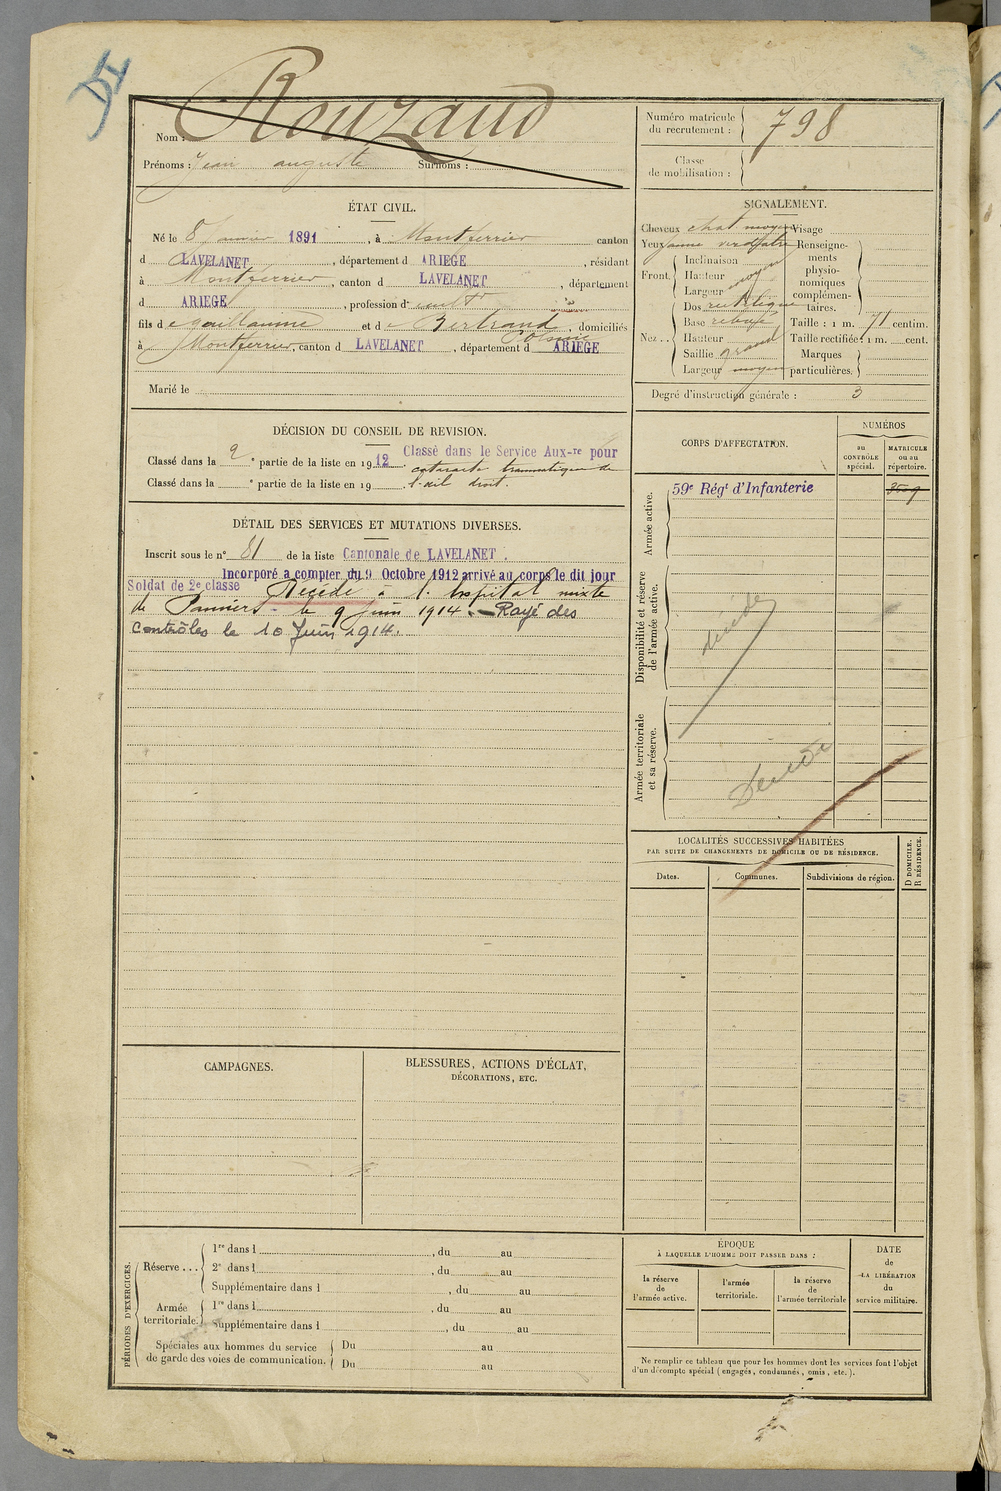 DI
Nom : Rouzaud
Prénoms : Jean auguste Surnoms :
Numéro matricule du recrutement : 798
Classe de mobilisation :
ÉTAT CIVIL.
Né le 8 Janvier 1891, à Montferrier canton
d LAVELANET, département d ARIEGE, résidant
à Montferrier, canton d LAVELANET, département
d ARIEGE, profession d cultr
fils de guillaume et de Bertrand, domiciliés
à Montferrier, canton d LAVELANET, département d ARIEGE
Marié le
SIGNALEMENT.
Cheveux chat moyen Visage
Yeux jaune verdâtre Renseignements physionomiques complémentaires.
Front. Inclinaison
Hauteur moyen
Largeur
Nez. . Dos rectiligne
Base relevé
Hauteur
Saillie grand
Largeur moyen
Taille : 1 m. 71 centim.
Taille rectifiée : 1 m. cent.
Marques particulières.
Degré d'instruction générale : 3
DÉCISION DU CONSEIL DE REVISION.
Classé dans la 2 e partie de la liste en 1912. Classé dans le Service Aux-re pour
cataracte traumatique de
Classé dans la e partie de la liste en 19 l'œil droit.
DÉTAIL DES SERVICES ET MUTATIONS DIVERSES.
Inscrit sous le n° 81 de la liste Cantonale de LAVELANET.
Incorporé a compter du 9 Octobre 1912 arrivé au corps le dit jour
Soldat de 2e classe Décédé à l'hôpital mixte
de Pamiers le 9 juin 1914. - Rayé des
Contrôles le 10 Juin 1914.
CORPS D'AFFECTATION.
NUMÉROS
au CONTRÔLE spécial.
MATRICULE ou au répertoire.
Armée active.
59e Régt d'Infanterie
Disponibilité et réserve de l'armée active.
décédé
Armée territoriale et sa réserve.
Décédé
LOCALITÉS SUCCESSIVES HABITÉES
PAR SUITE DE CHANGEMENTS DE DOMICILE OU DE RÉSIDENCE.
Dates.
Communes.
Subdivisions de région.
D DOMICILE.
R RÉSIDENCE.
CAMPAGNES.
BLESSURES, ACTIONS D'ÉCLAT,
DÉCORATIONS, ETC.
PÉRIODES D'EXERCICES.
Réserve ... 1re dans l , du au
2e dans l , du au
Supplémentaire dans l , du au
Armée territoriale. 1re dans l , du au
Supplémentaire dans l , du au
Spéciales aux hommes du service de garde des voies de communication. Du au
Du au
ÉPOQUE
À LAQUELLE L'HOMME DOIT PASSER DANS :
la réserve de l'armée active.
l'armée territoriale.
la réserve de l'armée territoriale
DATE de LA LIBÉRATION du service militaire.
Ne remplir ce tableau que pour les hommes dont les services font l'objet
d'un décompte spécial (engagés, condamnés, omis, etc.).